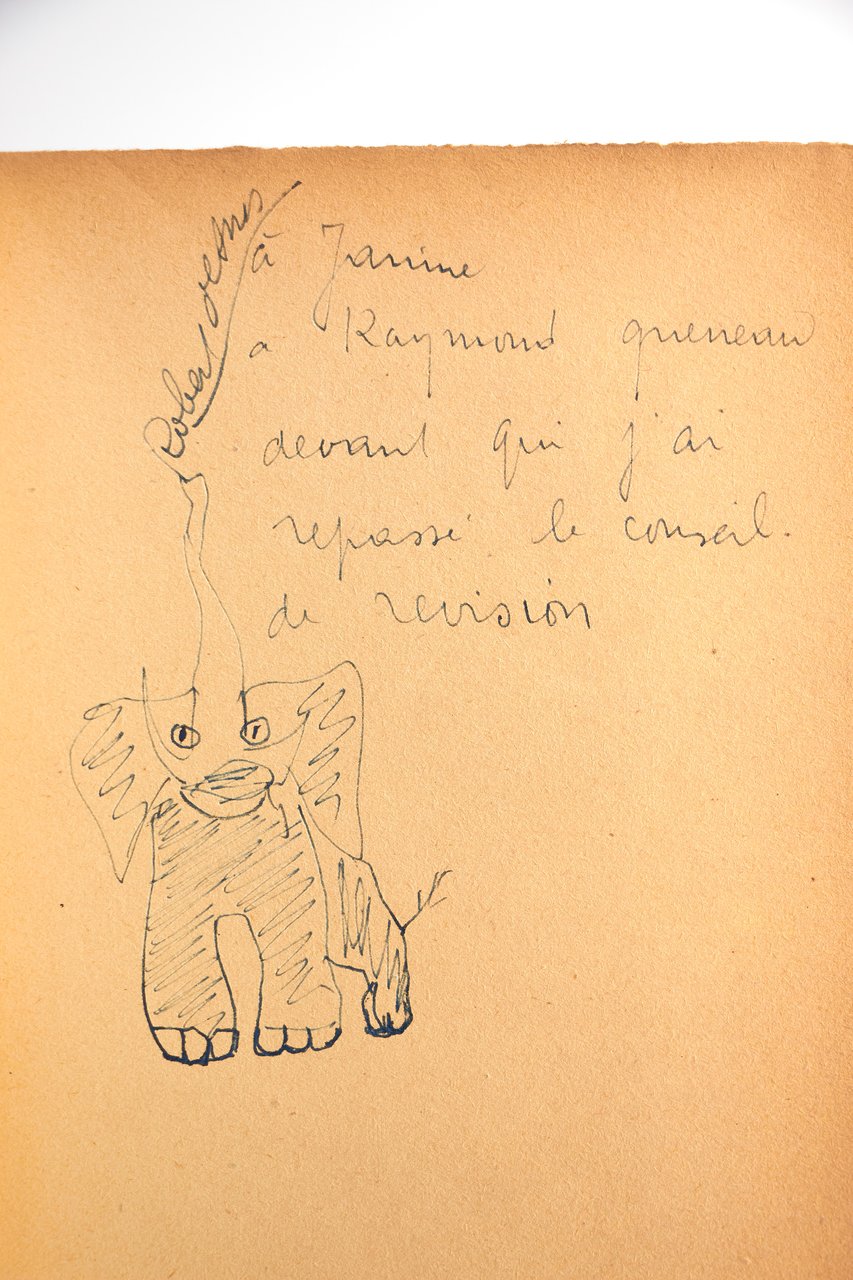 Robert Desnos
à Janine
a Raymond queneau
devant qui j'ai
repassé le conseil
de revision